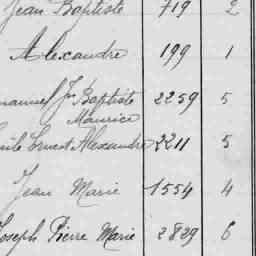 Jean Baptiste 719 2
Alexandre 199 1
Jn Baptiste 2259 5
Maurice
Ernest Alexandre 2211 5
Jean Marie 1554 4
Joseph Pierre Marie 2829 6